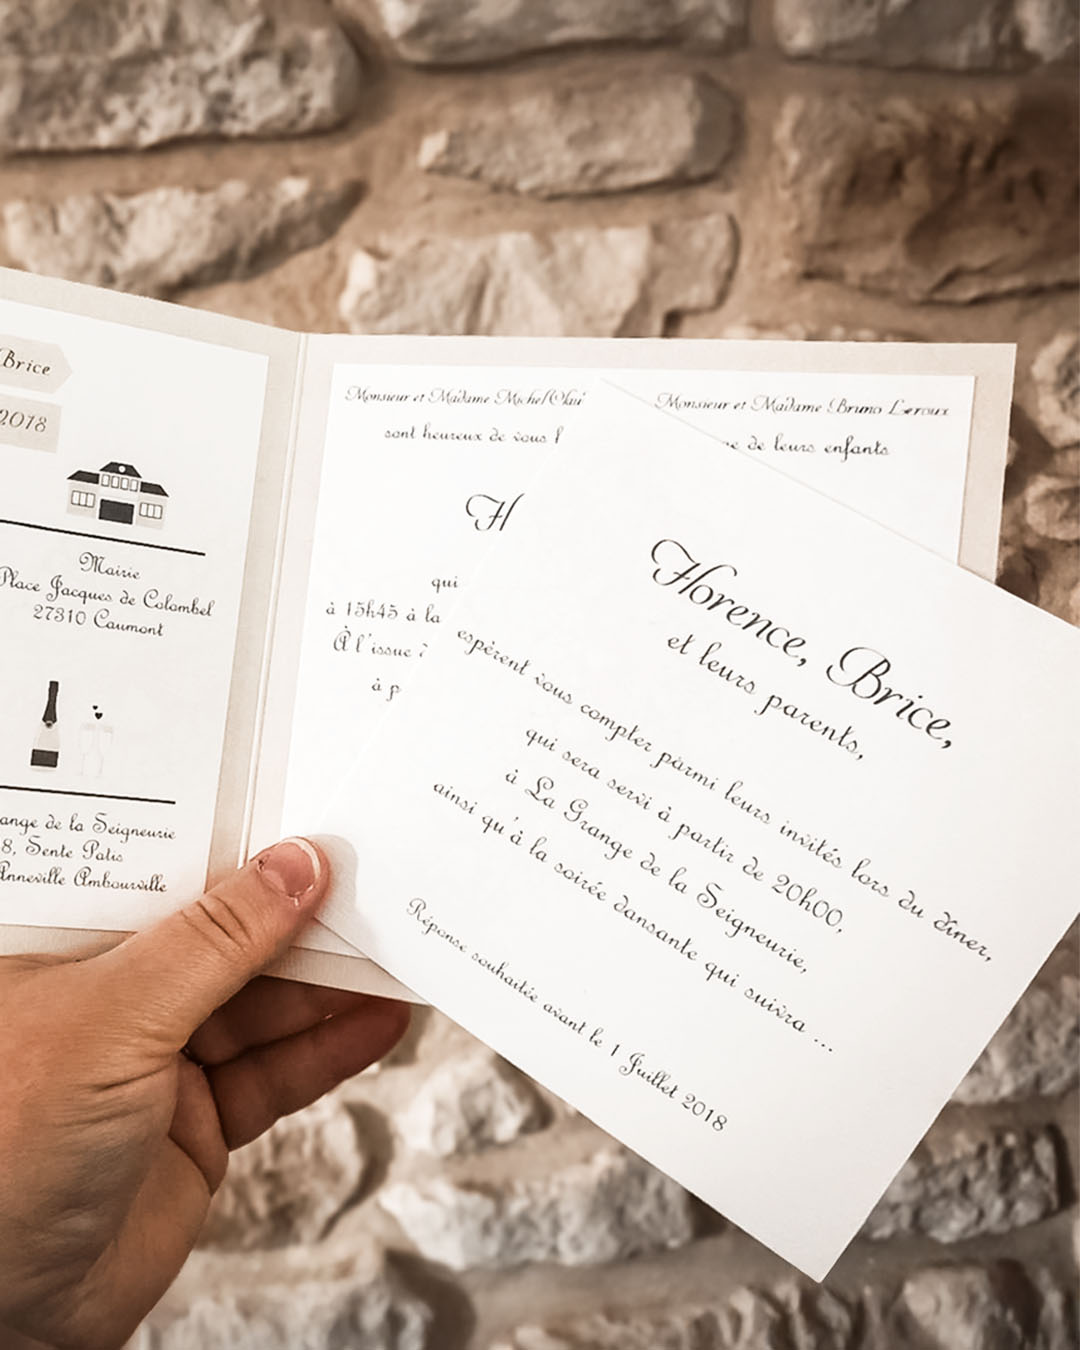 Brice
2018
Mairie
Place Jacques de Colombel
27310 Caumont
ange de la Seigneurie
8, Sente Patis
Anneville Ambourville
Monsieur et Madame Michel
Monsieur et Madame Bruno Leroux
sont heureux de vous
de leurs enfants
qui
à 15h45 à la
À l'issue
à p
Florence, Brice,
et leurs parents,
espèrent vous compter parmi leurs invités lors du dîner,
qui sera servi à partir de 20h00,
à La Grange de la Seigneurie,
ainsi qu'à la soirée dansante qui suivra ...
Réponse souhaitée avant le 1 Juillet 2018